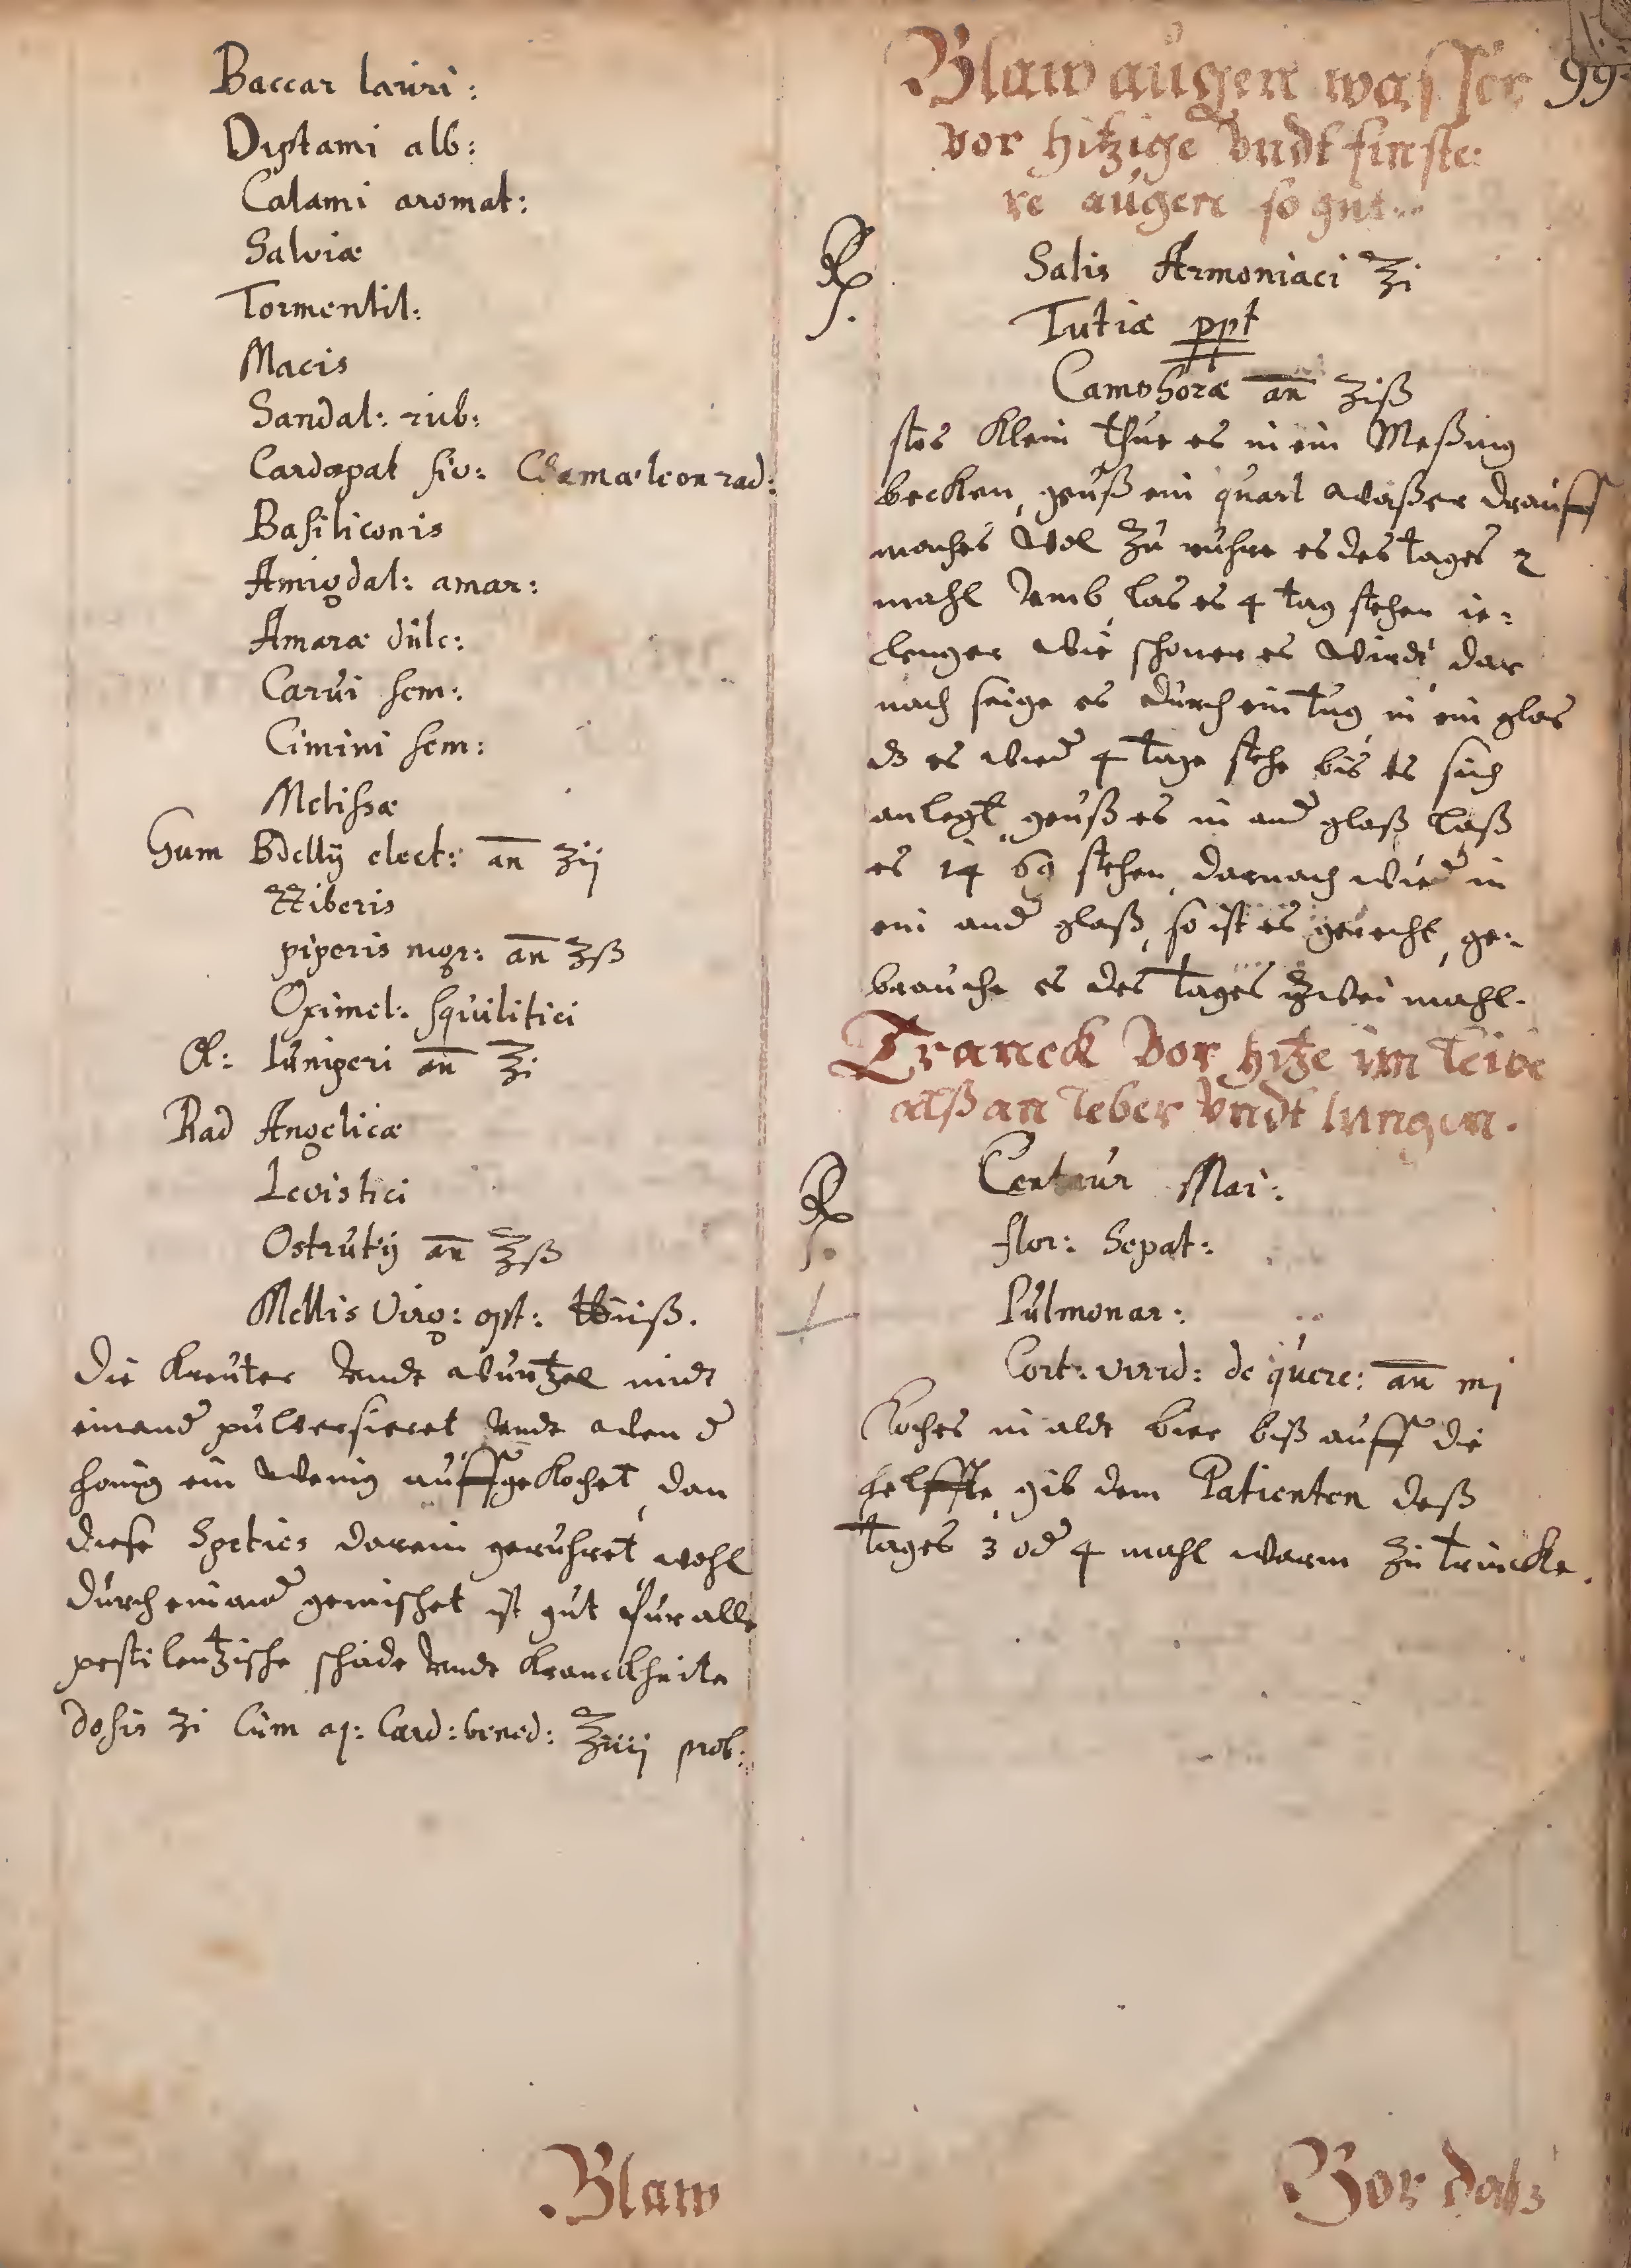 Baccar lauri:
Diptami alb:
Calami aromat:
Salviæ
Tormentil:
Macis
Sandal: rub:
Cardopat siv: Chamæleon rad:
Basiliconis
Amigdal: amar:
Amaræ dulc:
Carui sem:
Cimini sem:
Melissæ
Gum Bdellij elect: añ ʒij
Zziberis
piperis nigr: añ ʒß
Oximel: squilitici
Ol: Iuniperi añ ℥i
Rad Angelicæ
Levistici
Ostrutij añ ℥ß
Mellis Virg: opt: ℔iiß.
Die Kreuter undt Wurtzel midt
einand pulversieret undt den
honig ein Wenig auffgekochet, dan
diese Speties darein geruhret wohl
durch einand gemischet ist gut fur alle
pestilentzische schäde undt Kranckheite
Dosis ʒi Cum aq: Card: bened: ℥iiij prob:
Blaw
Blaw augen wasser 99
vor hitzige undt finste:
re augen so gut
℞. Salis Armoniaci ℥i
Tutiæ ppt
Camphoræ añ ʒiß
stos Klein thue es in ein Meßing
becken, geuß ein quart Waßer drauff
maches Wol zu ruhre es des tages 2
mahl umb, las es 4 tag stehen ie:
lenger Wie schoner es Wirdt, dar
nach seige es durch ein tug, in ein glas
dz es wied 4 tage stehe bis es sich
anlegt, geuß es in and glaß laß
es 14 stehen, darnach wied in
ein and glaß, so ist es gerecht, ge:
brauche es des tages zwei mahl.
Tranck vor hitze im leibe
alß an leber undt lungen.
℞. Centaur Mai:
flor: hepat:
Pulmonar:
Cort: virid: de querc: añ mj
Koches in aldt bier biß auff die
helffte, gib dem Patienten deß
tages 3 od 4 mahl warm zu trincke.
Vor daß